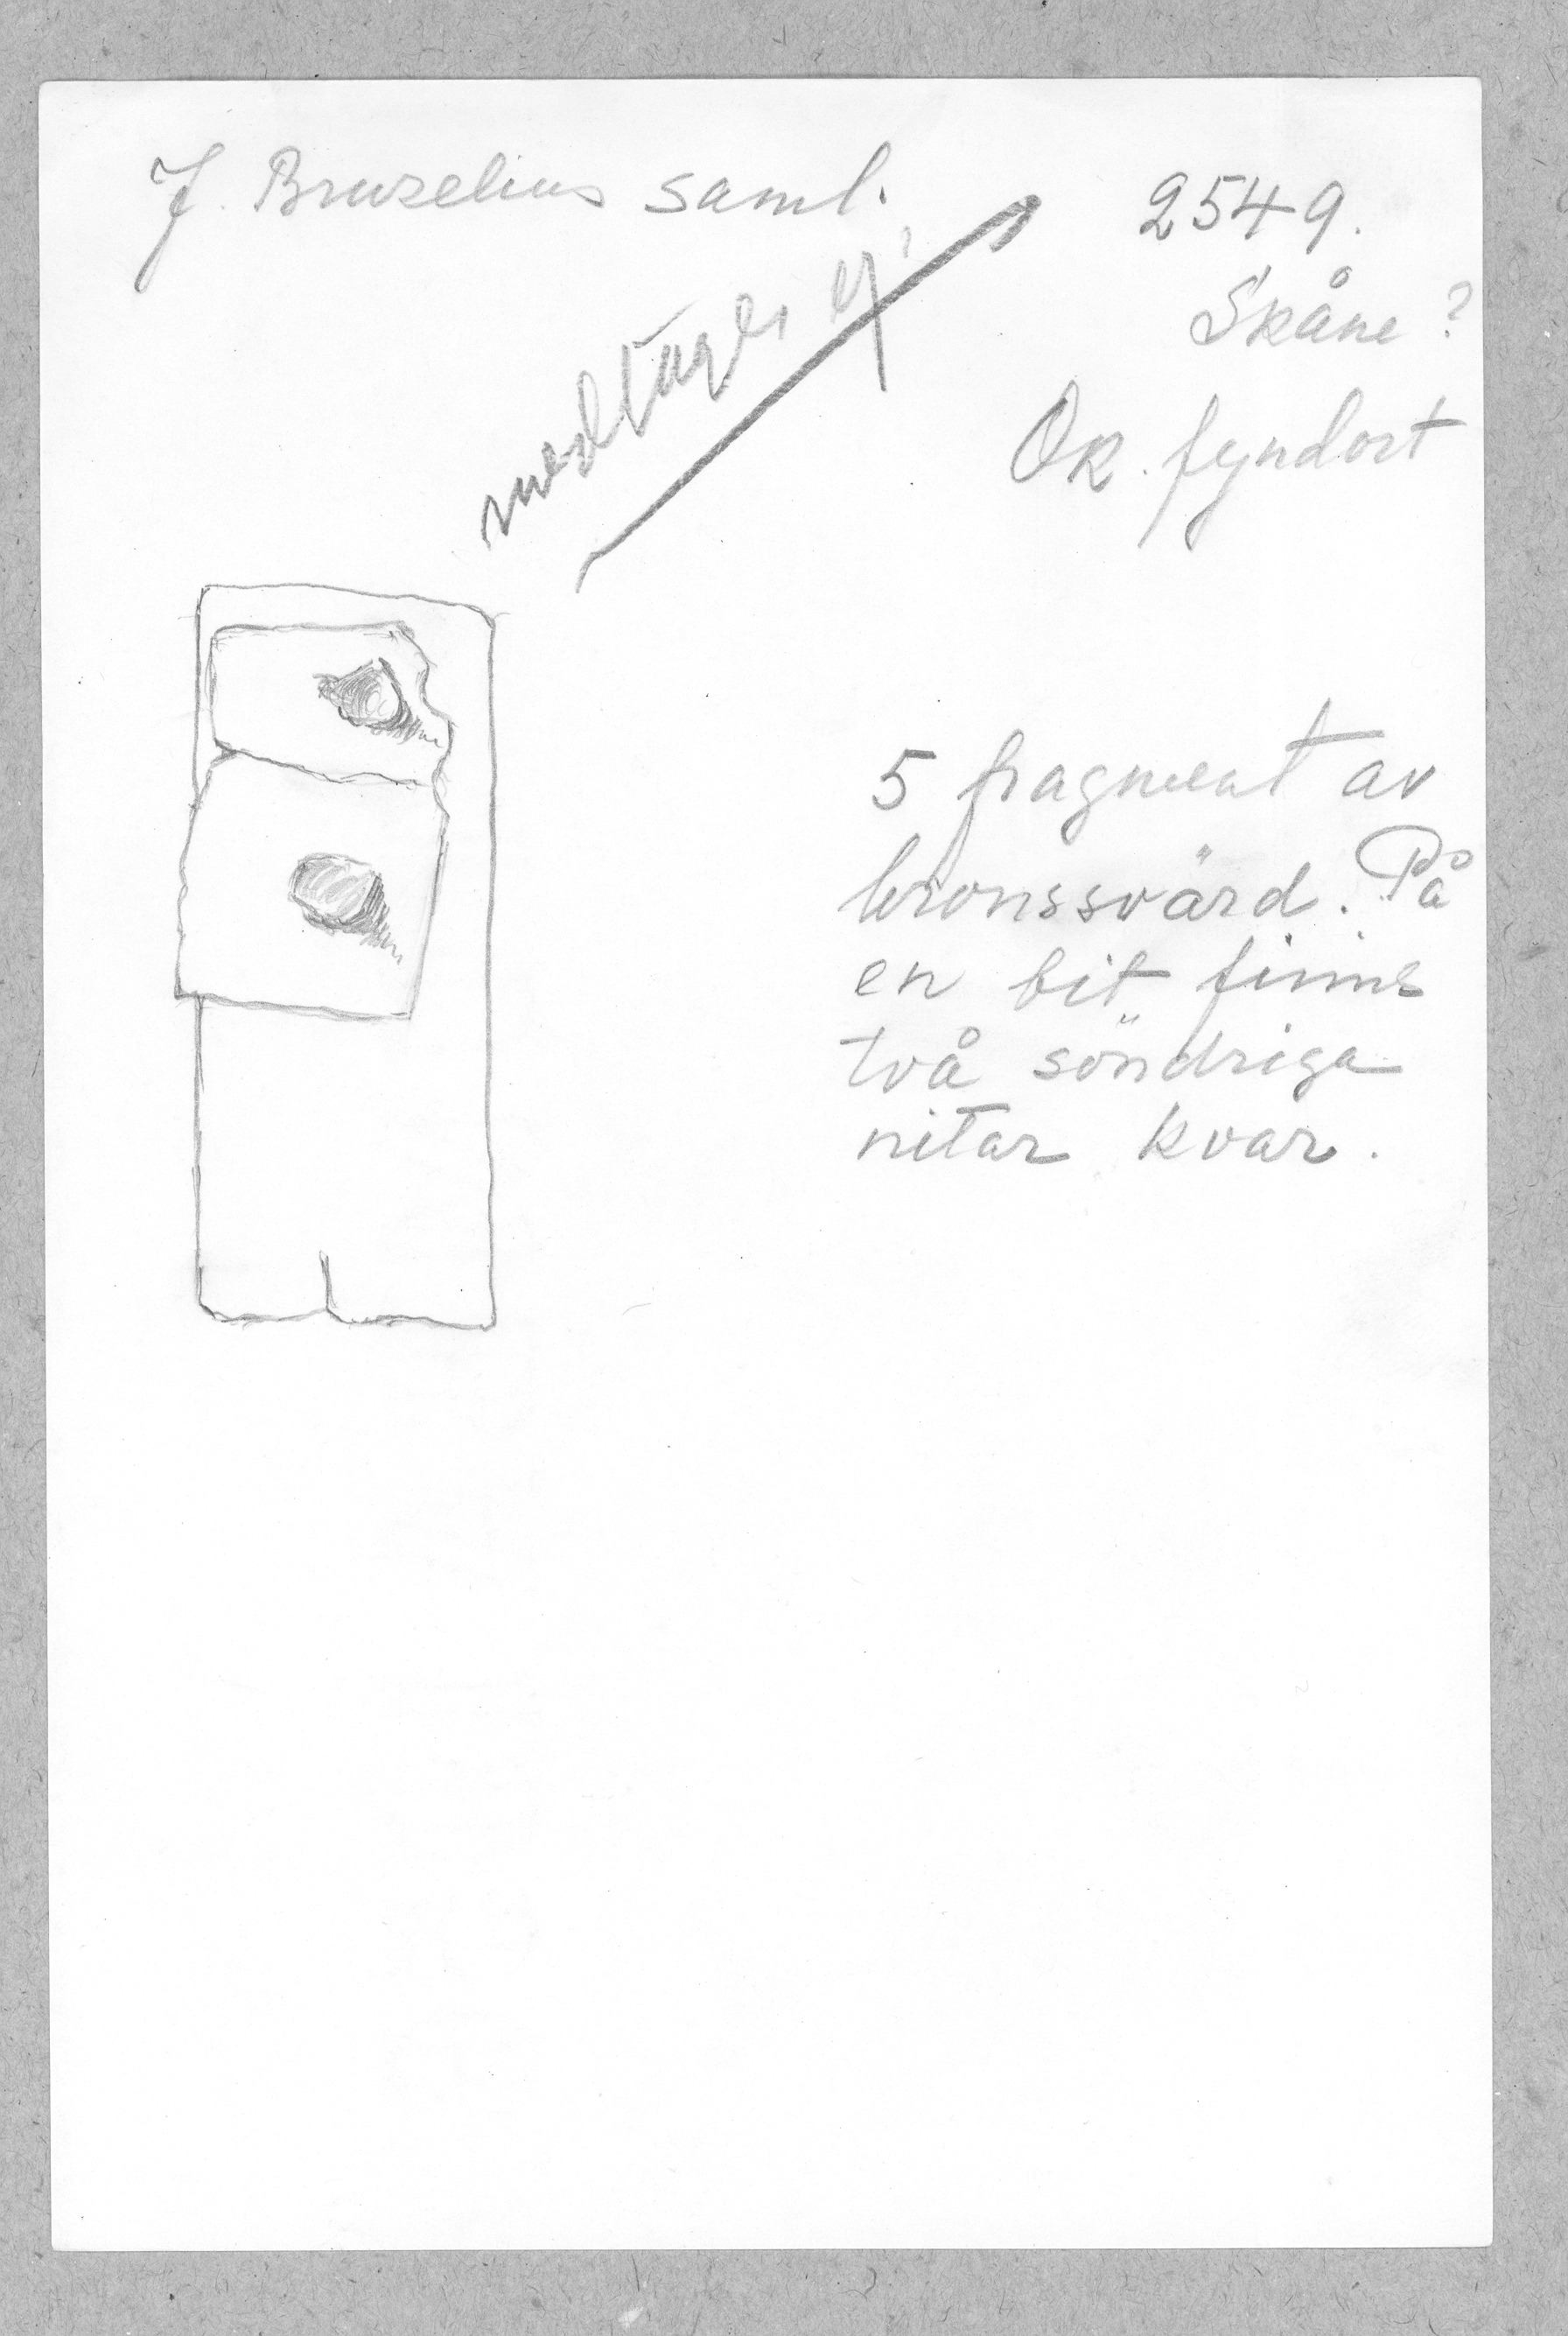 J. Bruzelius saml.
2549.
Skåne?
medtages ej.
Ok. fyndort
5 fragment av
bronssvärd. På
en bit finns
två söndriga
nitar kvar.